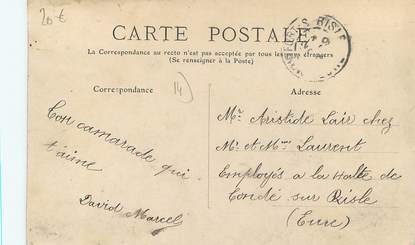 20 €
CARTE POSTALE
La Correspondance au recto n'est pas acceptée par tous les pays étrangers
(Se renseigner à la Poste)
RISLE
Correspondance
14
Adresse
Ton camarade qui
t'aime
David Marcel
Mr. Aristide Lair chez
Mr. et Mme Laurent
Employés a la Halte de
Condé sur Risle
(Eure)